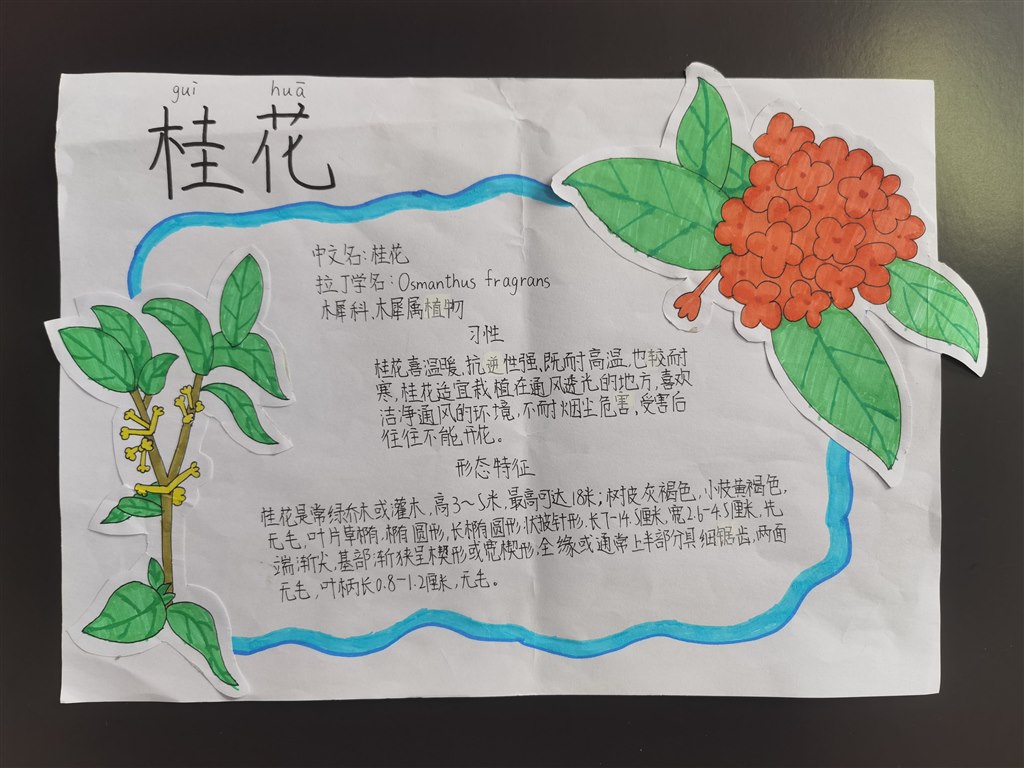 guì huā
桂花
中文名:桂花
拉丁学名:Osmanthus fragrans
木犀科、木犀属植物
习性
桂花喜温暖,抗逆性强,既耐高温,也较耐
寒,桂花适宜栽植在通风透光的地方,喜欢
洁净通风的环境,不耐烟尘危害,受害后
往往不能开花。
形态特征
桂花是常绿乔木或灌木,高3~5米,最高可达18米;树皮灰褐色,小枝黄褐色,
无毛,叶片革椭,椭圆形,长椭圆形状披针形,长7-14.5厘米,宽2.6-4.5厘米,光
端渐尖,基部渐狭呈楔形或宽楔形,全缘或通常上半部分具细锯齿,两面
无毛,叶柄长0.8-1.2厘米,无毛。